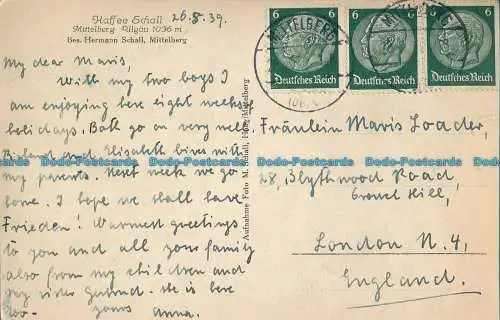 Kaffee Schall
Mittelberg Allgäu 1036 m
Bes. Hermann Schall, Mittelberg
26.8.39.
My dear Mavis,
With my two boys I
am enjoying here eight weeks
holidays. Both go on very well
Richard and Elisabeth lives with
my parents. Next week we go
home. I hope we shall have
Frieden! Warmest greetings
to you and all your family
also from my children and
my sister Gertrud. She is here
yours Anna.
Aufnahme Foto M. Schall, Mittelberg
6 6 6
Deutsches Reich Deutsches Reich Deutsches Reich
MITTELBERG
Fräulein Mavis Loader,
28, Blythwood Road,
Crouch Hill,
London N. 4,
England.
Dodo-Postcards Dodo-Postcards Dodo-Postcards